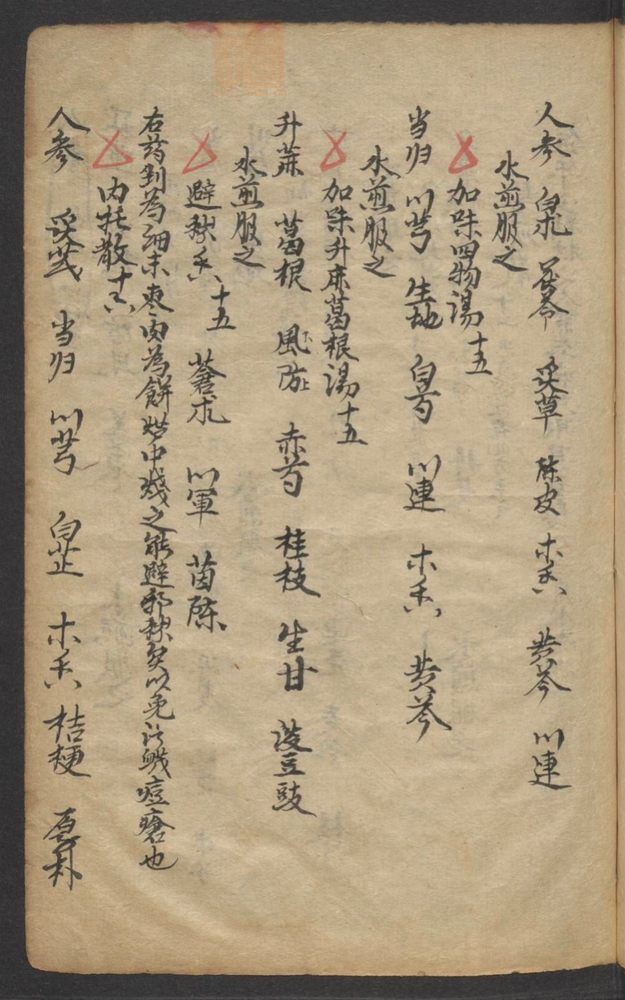 人参 白朮 茯苓 炙草 陈皮 木香 黄芩 川連
水煎服之
加味四物湯 十五
当归 川芎 生地 白芍 川連 木香 黄芩
水煎服之
加味升麻葛根湯 十五
升麻 葛根 風防 赤芍 桂枝 生甘 淡豆豉
水煎服之
避秽香 十五 蒼朮 川軍 茵陈
右药到為細末枣肉為餅炉中燒之能避邪秽矣以免 痘瘡也
内托散 十六
人参 炙芪 当归 川芎 白芷 木香 桔梗 厚朴